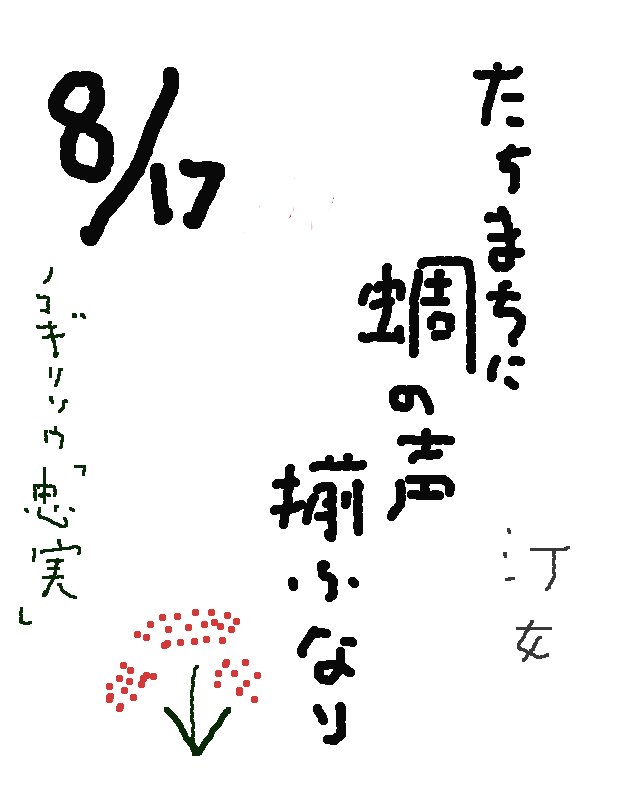 8/17
たちまちに
蜩の声
揃ふなり
汀女
ノコギリソウ「恵実」